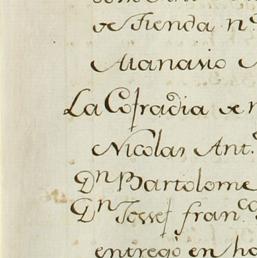 de Tienda nº
Atanasio
La Cofradia de
Nicolas Ant.º
Dn Bartolome
Dn Josef fran.co
entregò en